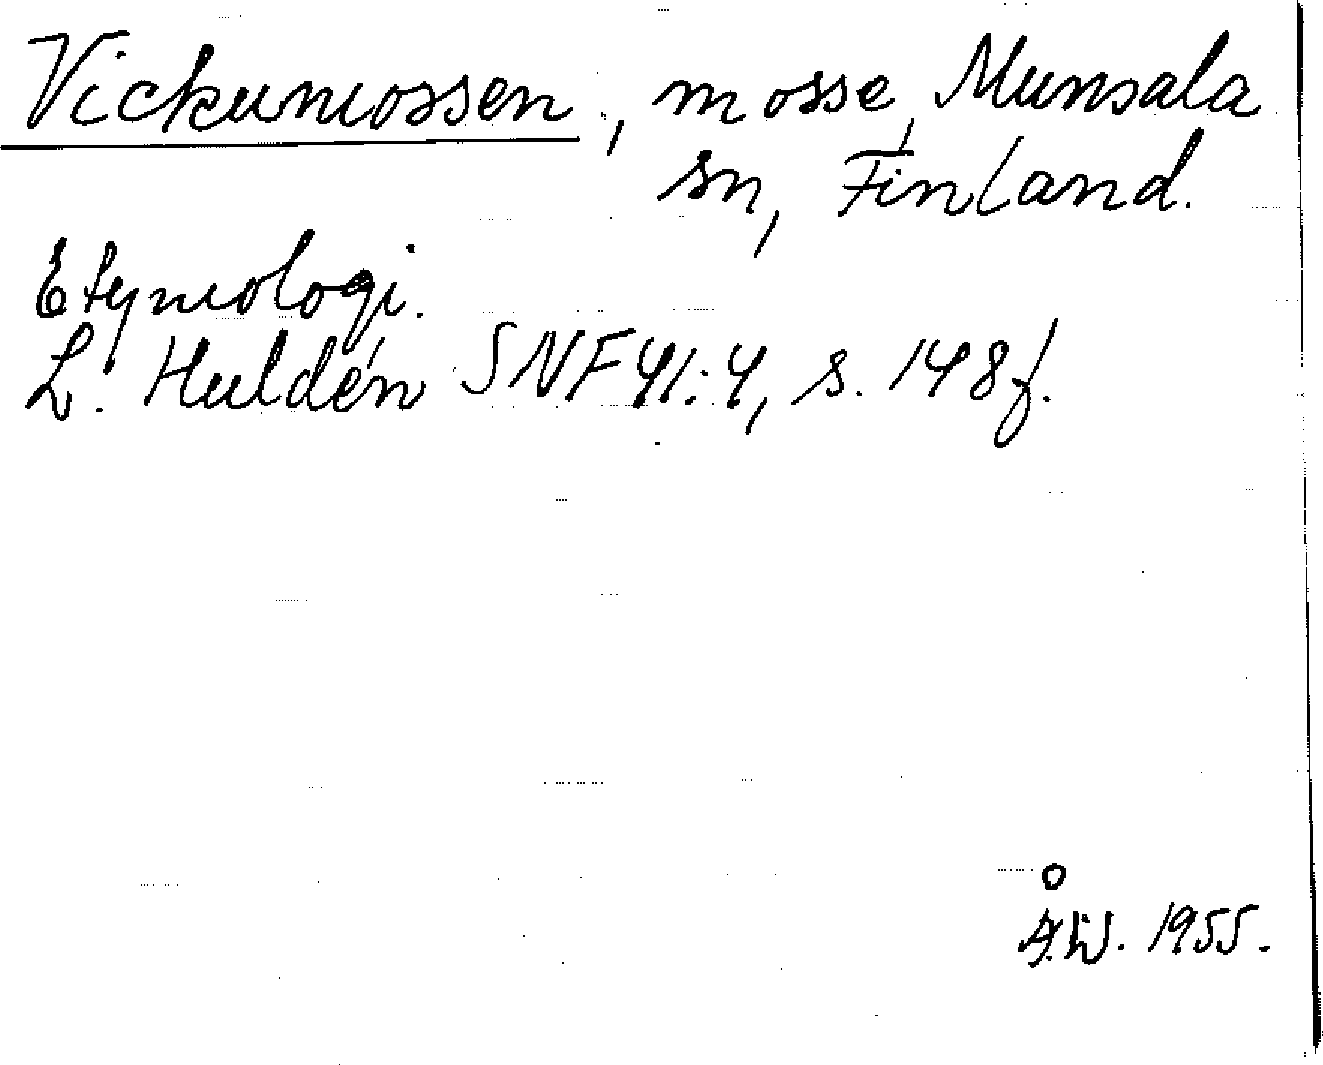 Vickumossen, mosse, Munsala
sn, Finland.
Etymologi.
L. Huldén SNF 41:4, s. 148 f.
Å.W. 1955.